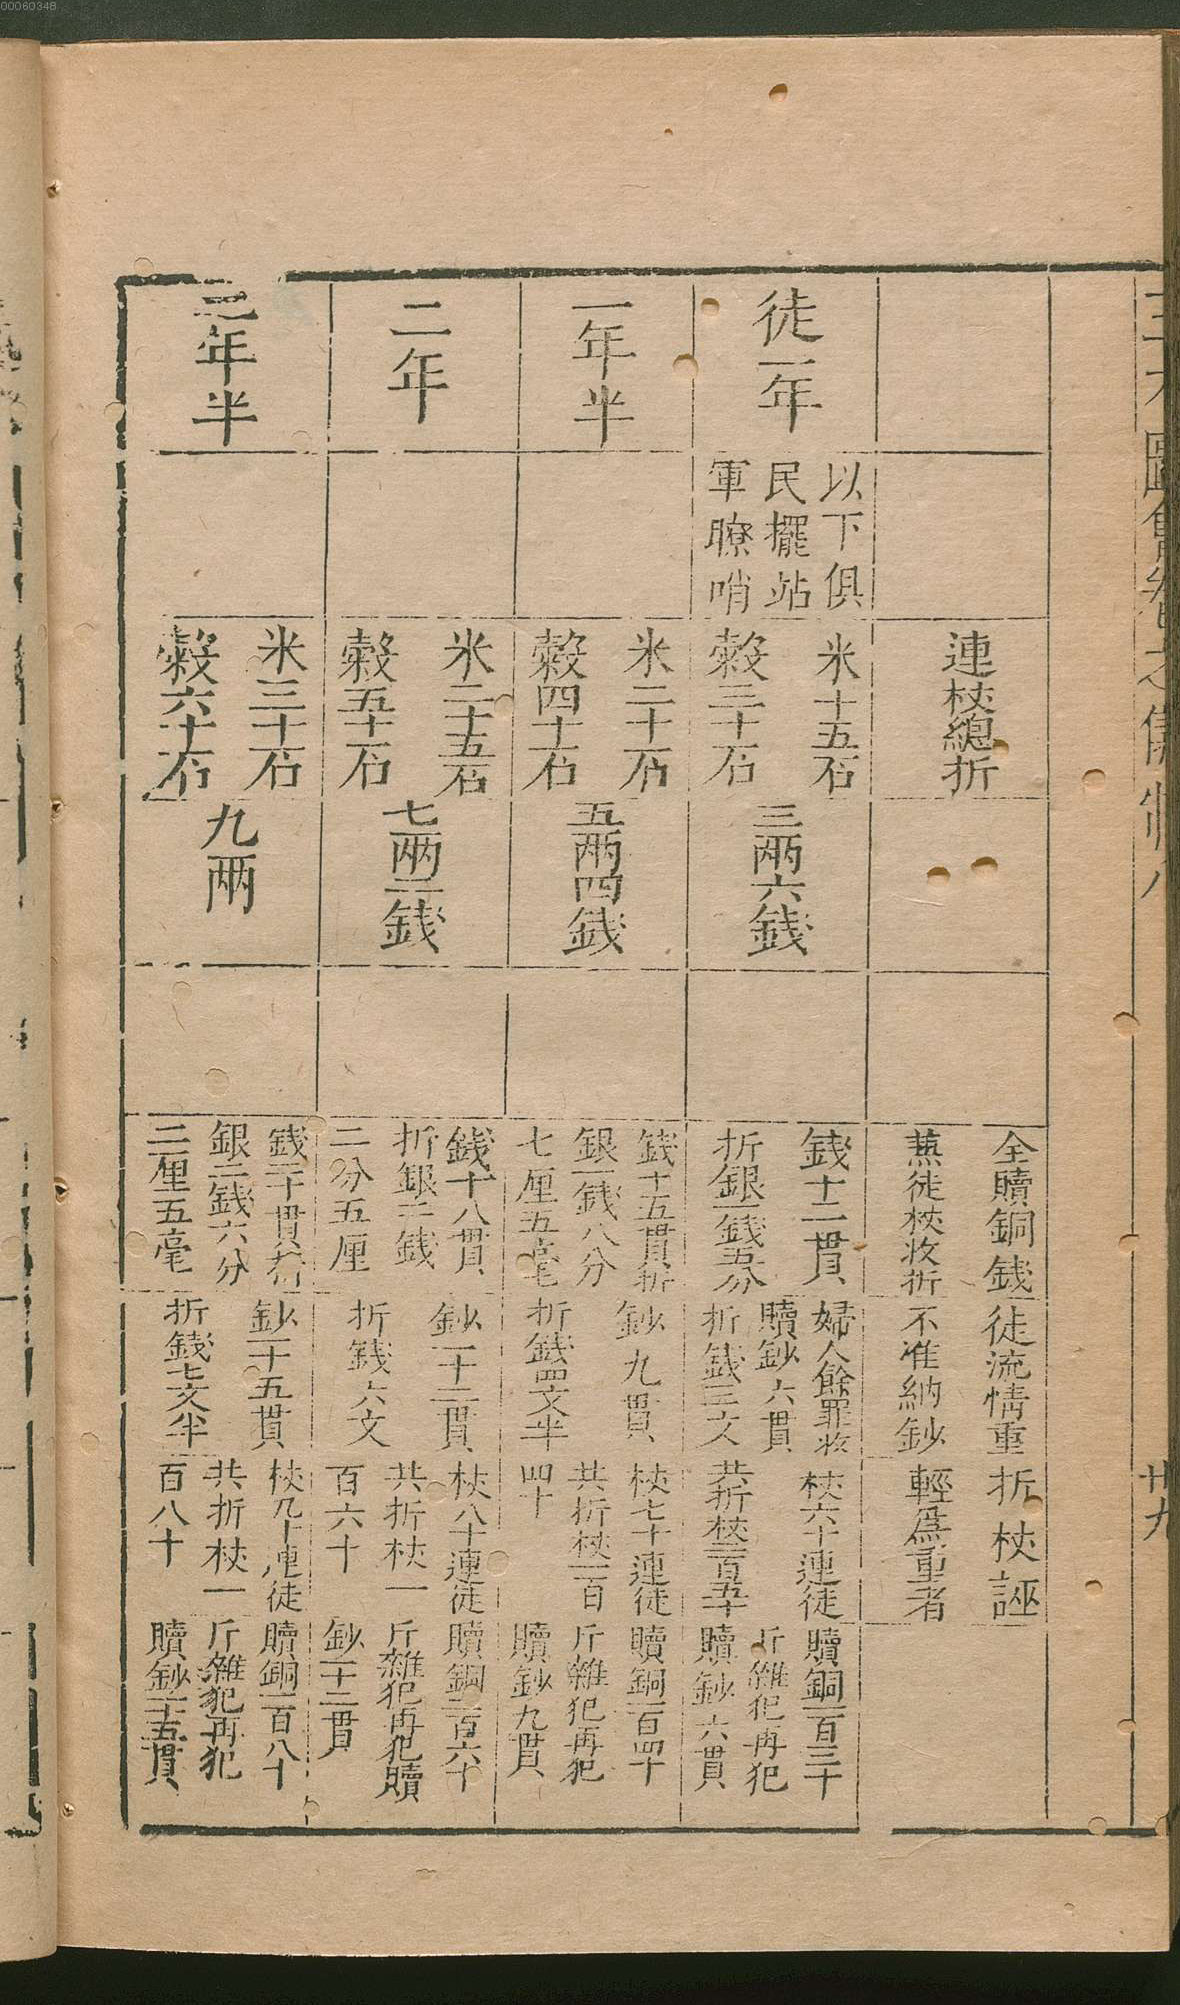 00060348
三才圖會卷之儀制八
卅九
連杖總折
全贖銅錢
兼徒杖收折
徒流情重
不准納鈔
折杖誣
輕爲重者
徒一年
以下俱
民擺站
軍瞭哨
米十五石
榖三十石
三兩六錢
錢十二貫
折銀一錢五分
婦人餘罪收
贖鈔六貫
折錢三文
杖六十連徒
共折杖一百二十
贖銅一百二十
斤雜犯再犯
贖鈔六貫
一年半
米二十石
榖四十石
五兩四錢
錢十五貫折
銀一錢八分
七厘五毫
鈔九貫
折錢四文半
杖七十連徒
共折杖一百
四十
贖銅一百四十
斤雜犯再犯
贖鈔九貫
二年
米二十五石
榖五十石
七兩二錢
錢十八貫
折銀二錢
二分五厘
鈔一十二貫
折錢六文
杖八十連徒
共折杖一
百六十
贖銅一百六十
斤雜犯再犯贖
鈔一十二貫
二年半
米三十石
榖六十石
九兩
錢二十一貫折
銀二錢六分
二厘五毫
鈔一十五貫
折錢七文半
杖九十連徒
共折杖一
百八十
贖銅一百八十
斤雜犯再犯
贖鈔一十五貫